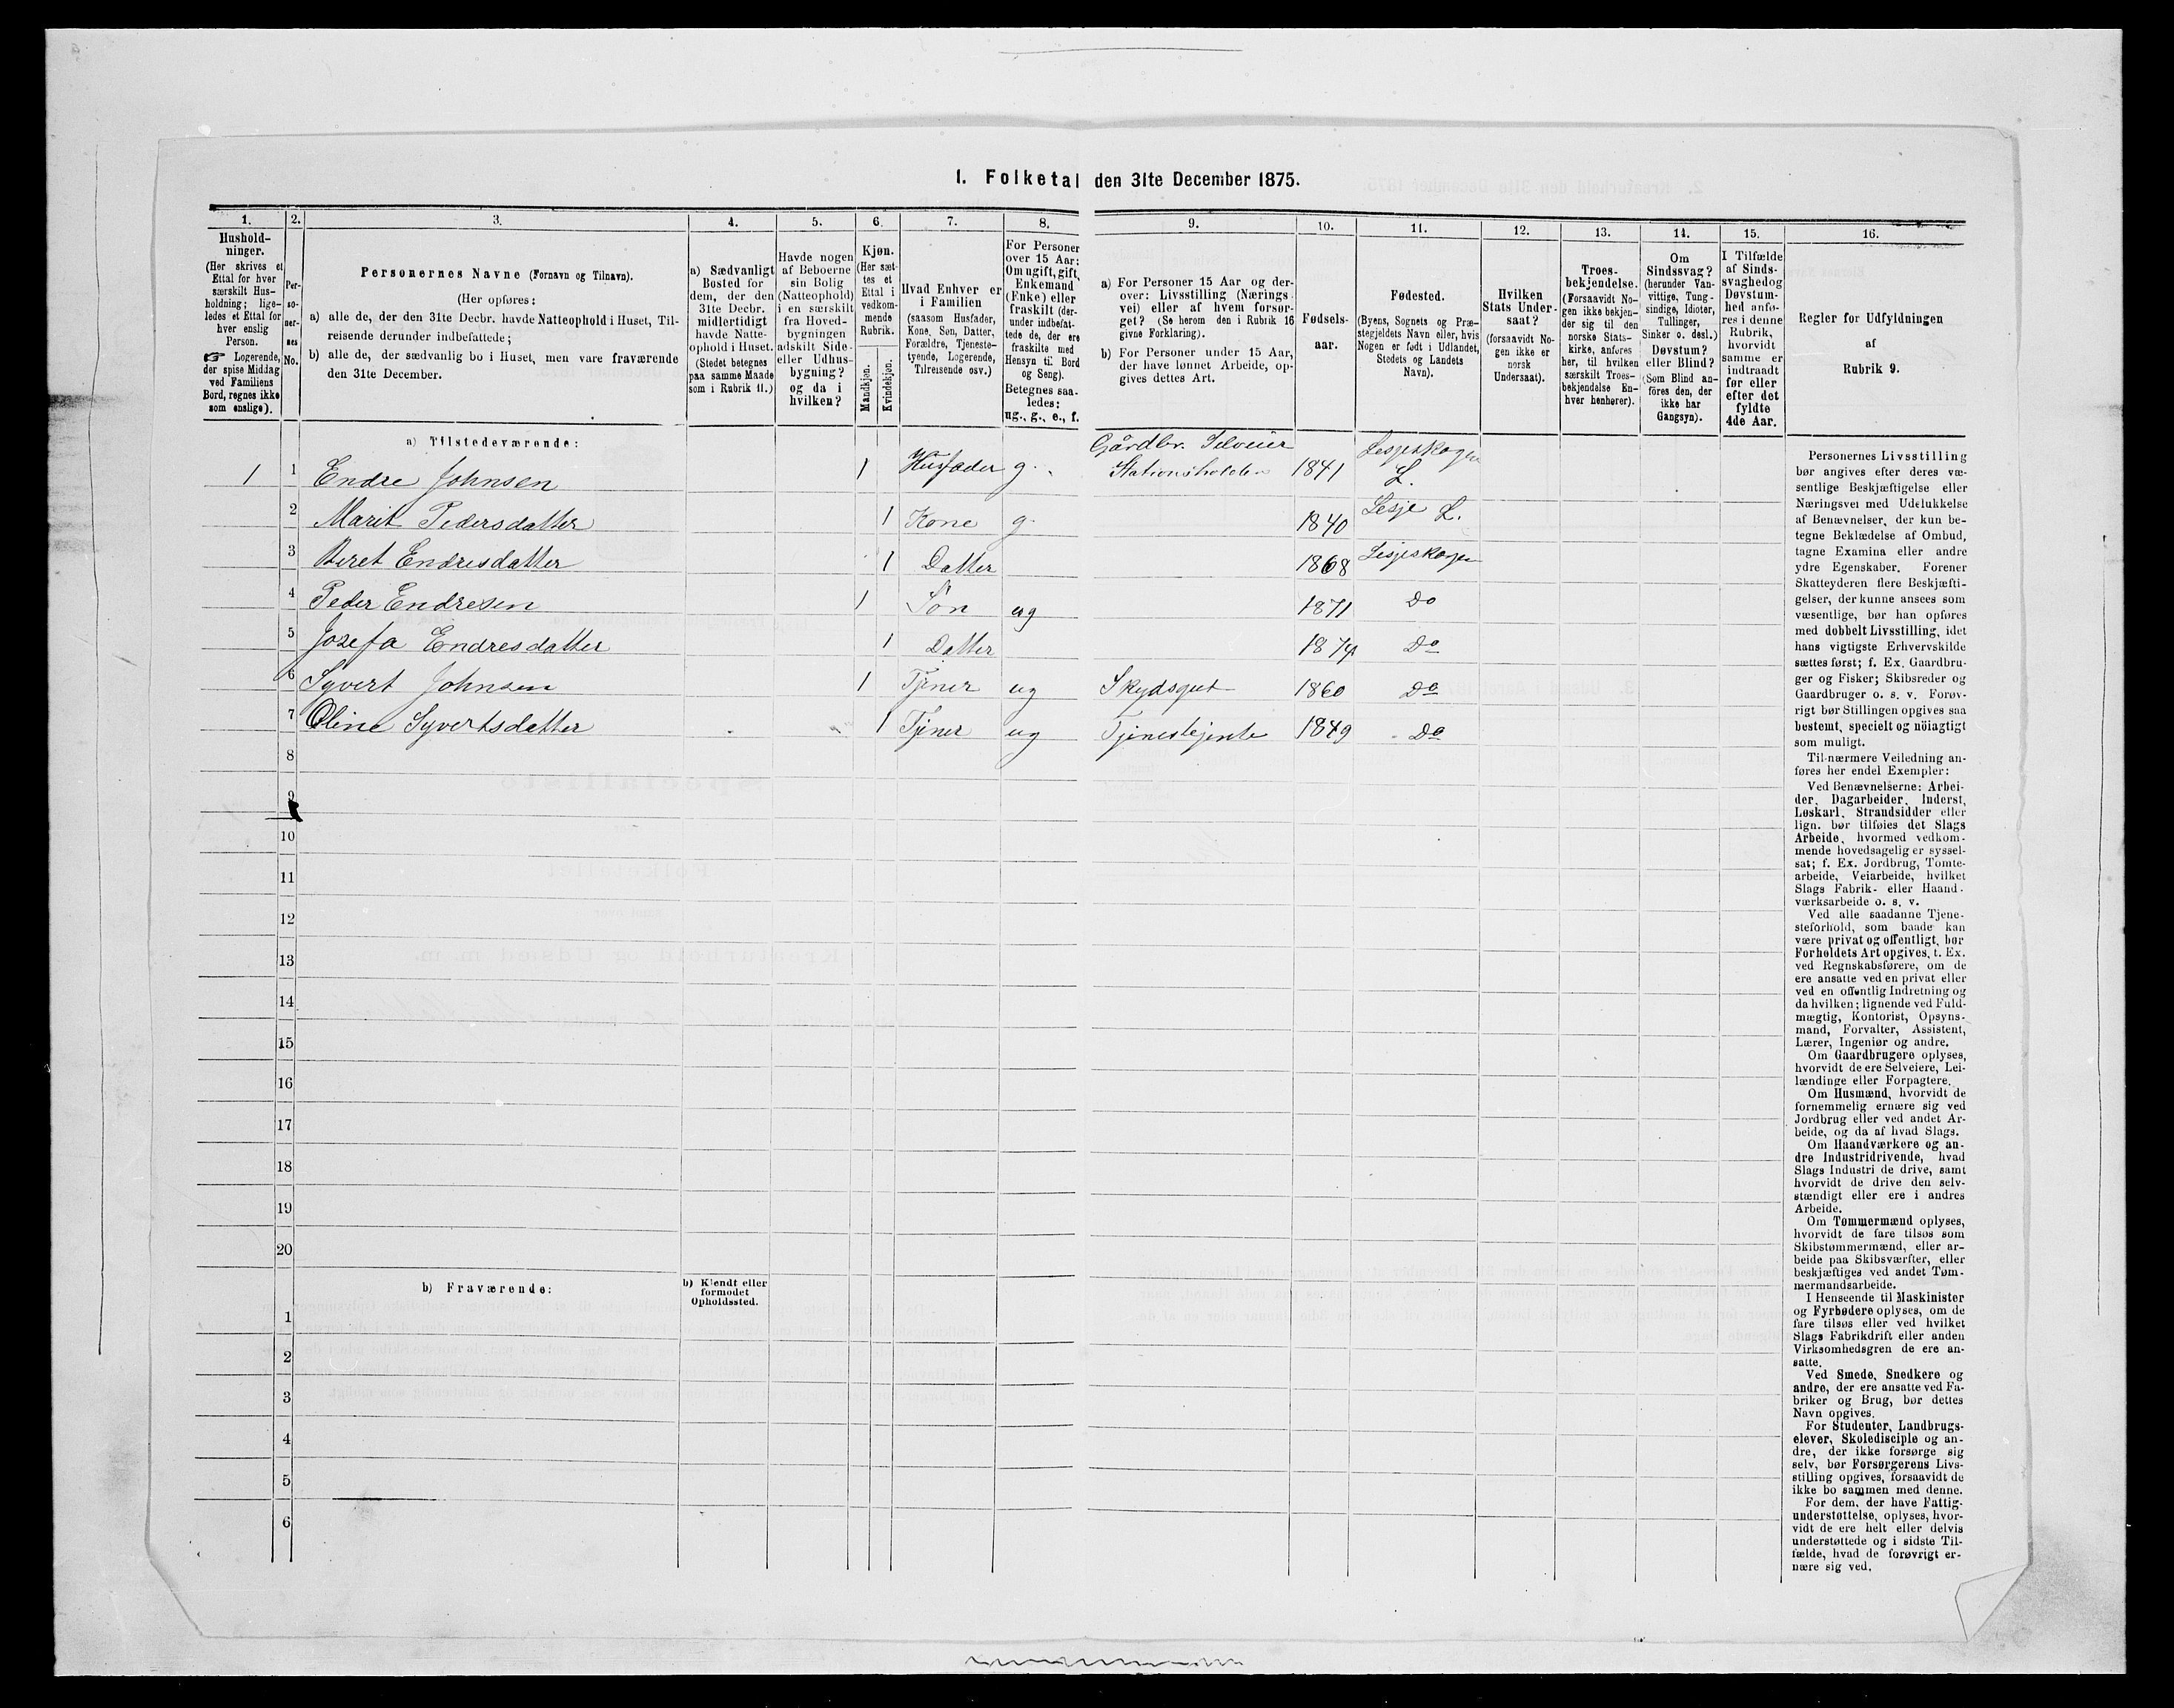 1. Folketal den 31te December 1875.
1. 2. 3. 4. 5. 6. 7. 8. 9. 10. 11. 12. 13. 14. 15. 16.
Hushold-
ninger.
(Her skrives et
Ettal for hver
særskilt Hus-
holdning; lige-
ledes et Ettal for
hver enslig
Person.
☞ Logerende,
der spise Middag
ved Familiens
Bord, regnes ikke
som enslige).
Per-
so-
ner-
nes
No.
Personernes Navne (Fornavn og Tilnavn).
(Her opføres:
a) alle de, der den 31te Decbr. havde Natteophold i Huset, Til-
reisende derunder indbefattede;
b) alle de, der sædvanlig bo i Huset, men vare fraværende
den 31te December.
a) Sædvanligt
Bosted for
dem, der den
31te Decbr.
midlertidigt
havde Natte-
ophold i Huset.
(Stedet betegnes
paa samme Maade
som i Rubrik 11.)
Havde nogen
af Beboerne
sin Bolig
(Natteophold)
i en særskilt
fra Hoved-
bygningen
adskilt Side-
eller Udhus-
bygning?
og da i
hvilken?
Kjøn.
(Her sæt-
tes et
Ettal i
vedkom-
mende
Rubrik.
Mandkjøn.
Kvindekjøn.
Hvad Enhver er
i Familien
(saasom Husfader,
Kone, Søn, Datter,
Forældre, Tjeneste-
tyende, Logerende,
Tilreisende osv.)
For Personer
over 15 Aar:
Om ugift, gift,
Enkemand
(Enke) eller
fraskilt (der-
under indbefat-
tede de, der ere
fraskilte med
Hensyn til Bord
og Seng).
Betegnes saa-
ledes:
ug., g., e., f.
a) For Personer 15 Aar og der-
over: Livsstilling (Nærings-
vei) eller af hvem forsør-
get? (Se herom den i Rubrik 16
givne Forklaring).
b) For Personer under 15 Aar,
der have lønnet Arbeide, op-
gives dettes Art.
Fødsels-
aar.
Fødested.
(Byens, Sognets og Præ-
stegjeldets Navn eller, hvis
Nogen er født i Udlandet,
Stedets og Landets
Navn).
Hvilken
Stats Under-
saat?
(forsaavidt No-
gen ikke er
norsk
Undersaat).
Troes-
bekjendelse.
(Forsaavidt No-
gen ikke bekjen-
der sig til den
norske Stats-
kirke, anføres
her, til hvilken
særskilt Troes-
bekjendelse En-
hver henhører).
Om
Sindssvag?
(herunder Van-
vittige, Tung-
sindige, Idioter,
Tullinger,
Sinker o. desl.)
Døvstum?
eller Blind?
(Som Blind an-
føres den, der
ikke har
Gangsyn).
I Tilfælde
af Sinds-
svaghed og
Døvstum-
hed anfø-
res i denne
Rubrik,
hvorvidt
samme er
indtraadt
før eller
efter det
fyldte
4de Aar.
Regler for Udfyldningen
af
Rubrik 9.
a) Tilstedeværende:
Gårdbr. Selveier
1 1 Endre Johnsen 1 Husfader g. Stationsholder 1841 Lesjeskogen L.
2 Marit Pedersdatter 1 Kone g. 1840 Lesje L.
3 Beret Endresdatter 1 Datter 1868 Lesjeskogen
4 Peder Endresen 1 Søn ug 1871 Do
5 Josefa Endresdatter 1 Datter 1874 Do
6 Syvert Johnsen 1 Tjener ug Skydsgut 1860 Do
7 Oline Syvertsdatter 1 Tjener ug Tjenestejente 1849 Do
8
9
10
11
12
13
14
15
16
17
18
19
20
b) Fraværende:
b) Kjendt eller
formodet
Opholdssted.
1
2
3
4
5
6
Personernes Livsstilling
bør angives efter deres væ-
sentlige Beskjæftigelse eller
Næringsvei med Udelukkelse
af Benævnelser, der kun be-
tegne Beklædelse af Ombud,
tagne Examina eller andre
ydre Egenskaber. Forener
Skatteyderen flere Beskjæfti-
gelser, der kunne ansees som
væsentlige, bør han opføres
med dobbelt Livsstilling, idet
hans vigtigste Erhvervskilde
sættes først; f. Ex. Gaardbru-
ger og Fisker; Skibsreder og
Gaardbruger o. s. v. Forøv-
rigt bør Stillingen opgives saa
bestemt, specielt og nöiagtigt
som muligt.
Til nærmere Veiledning an-
føres her endel Exempler:
Ved Benævnelserne: Arbei-
der, Dagarbeider, Inderst,
Løskarl, Strandsidder eller
lign. bør tilføies det Slags
Arbeide, hvormed vedkom-
mende hovedsagelig er syssel-
sat; f. Ex. Jordbrug, Tomte-
arbeide, Veiarbeide, hvilket
Slags Fabrik- eller Haand-
værksarbeide o. s. v.
Ved alle saadanne Tjene-
steforhold, som baade kan
være privat og offentligt, bør
Forholdets Art opgives, t. Ex.
ved Regnskabsførere, om de
ere ansatte ved en privat eller
ved en offentlig Indretning og
da hvilken; lignende ved Fuld-
mægtig, Kontorist, Opsyns-
mand, Forvalter, Assistent,
Lærer, Ingeniør og andre.
Om Gaardbrugere oplyses,
hvorvidt de ere Selveiere, Lei-
lændinge eller Forpagtere.
Om Husmænd, hvorvidt de
fornemmelig ernære sig ved
Jordbrug eller ved andet Ar-
beide, og da af hvad Slags.
Om Haandværkere og an-
dre Industridrivende, hvad
Slags Industri de drive, samt
hvorvidt de drive den selv-
stændigt eller ere i andres
Arbeide.
Om Tømmermænd oplyses,
hvorvidt de fare tilsøs som
Skibstømmermænd, eller ar-
beide paa Skibsværfter, eller
beskjæftiges ved andet Tøm-
mermandsarbeide.
I Henseende til Maskinister
og Fyrbødere oplyses, om de
fare tilsøs eller ved hvilket
Slags Fabrikdrift eller anden
Virksomhedsgren de ere an-
satte.
Ved Smede, Snedkere og
andre, der ere ansatte ved Fa-
briker og Brug, bør dettes
Navn opgives.
For Studenter, Landbrugs-
elever, Skoledisciple og an-
dre, der ikke forsørge sig
selv, bør Forsørgerens Livs-
stilling opgives, forsaavidt de
ikke bo sammen med denne.
For dem, der have Fattig-
understøttelse, oplyses, hvor-
vidt de ere helt eller delvis
understøttede og i sidste Til-
fælde, hvad de forøvrigt er-
nære sig ved.